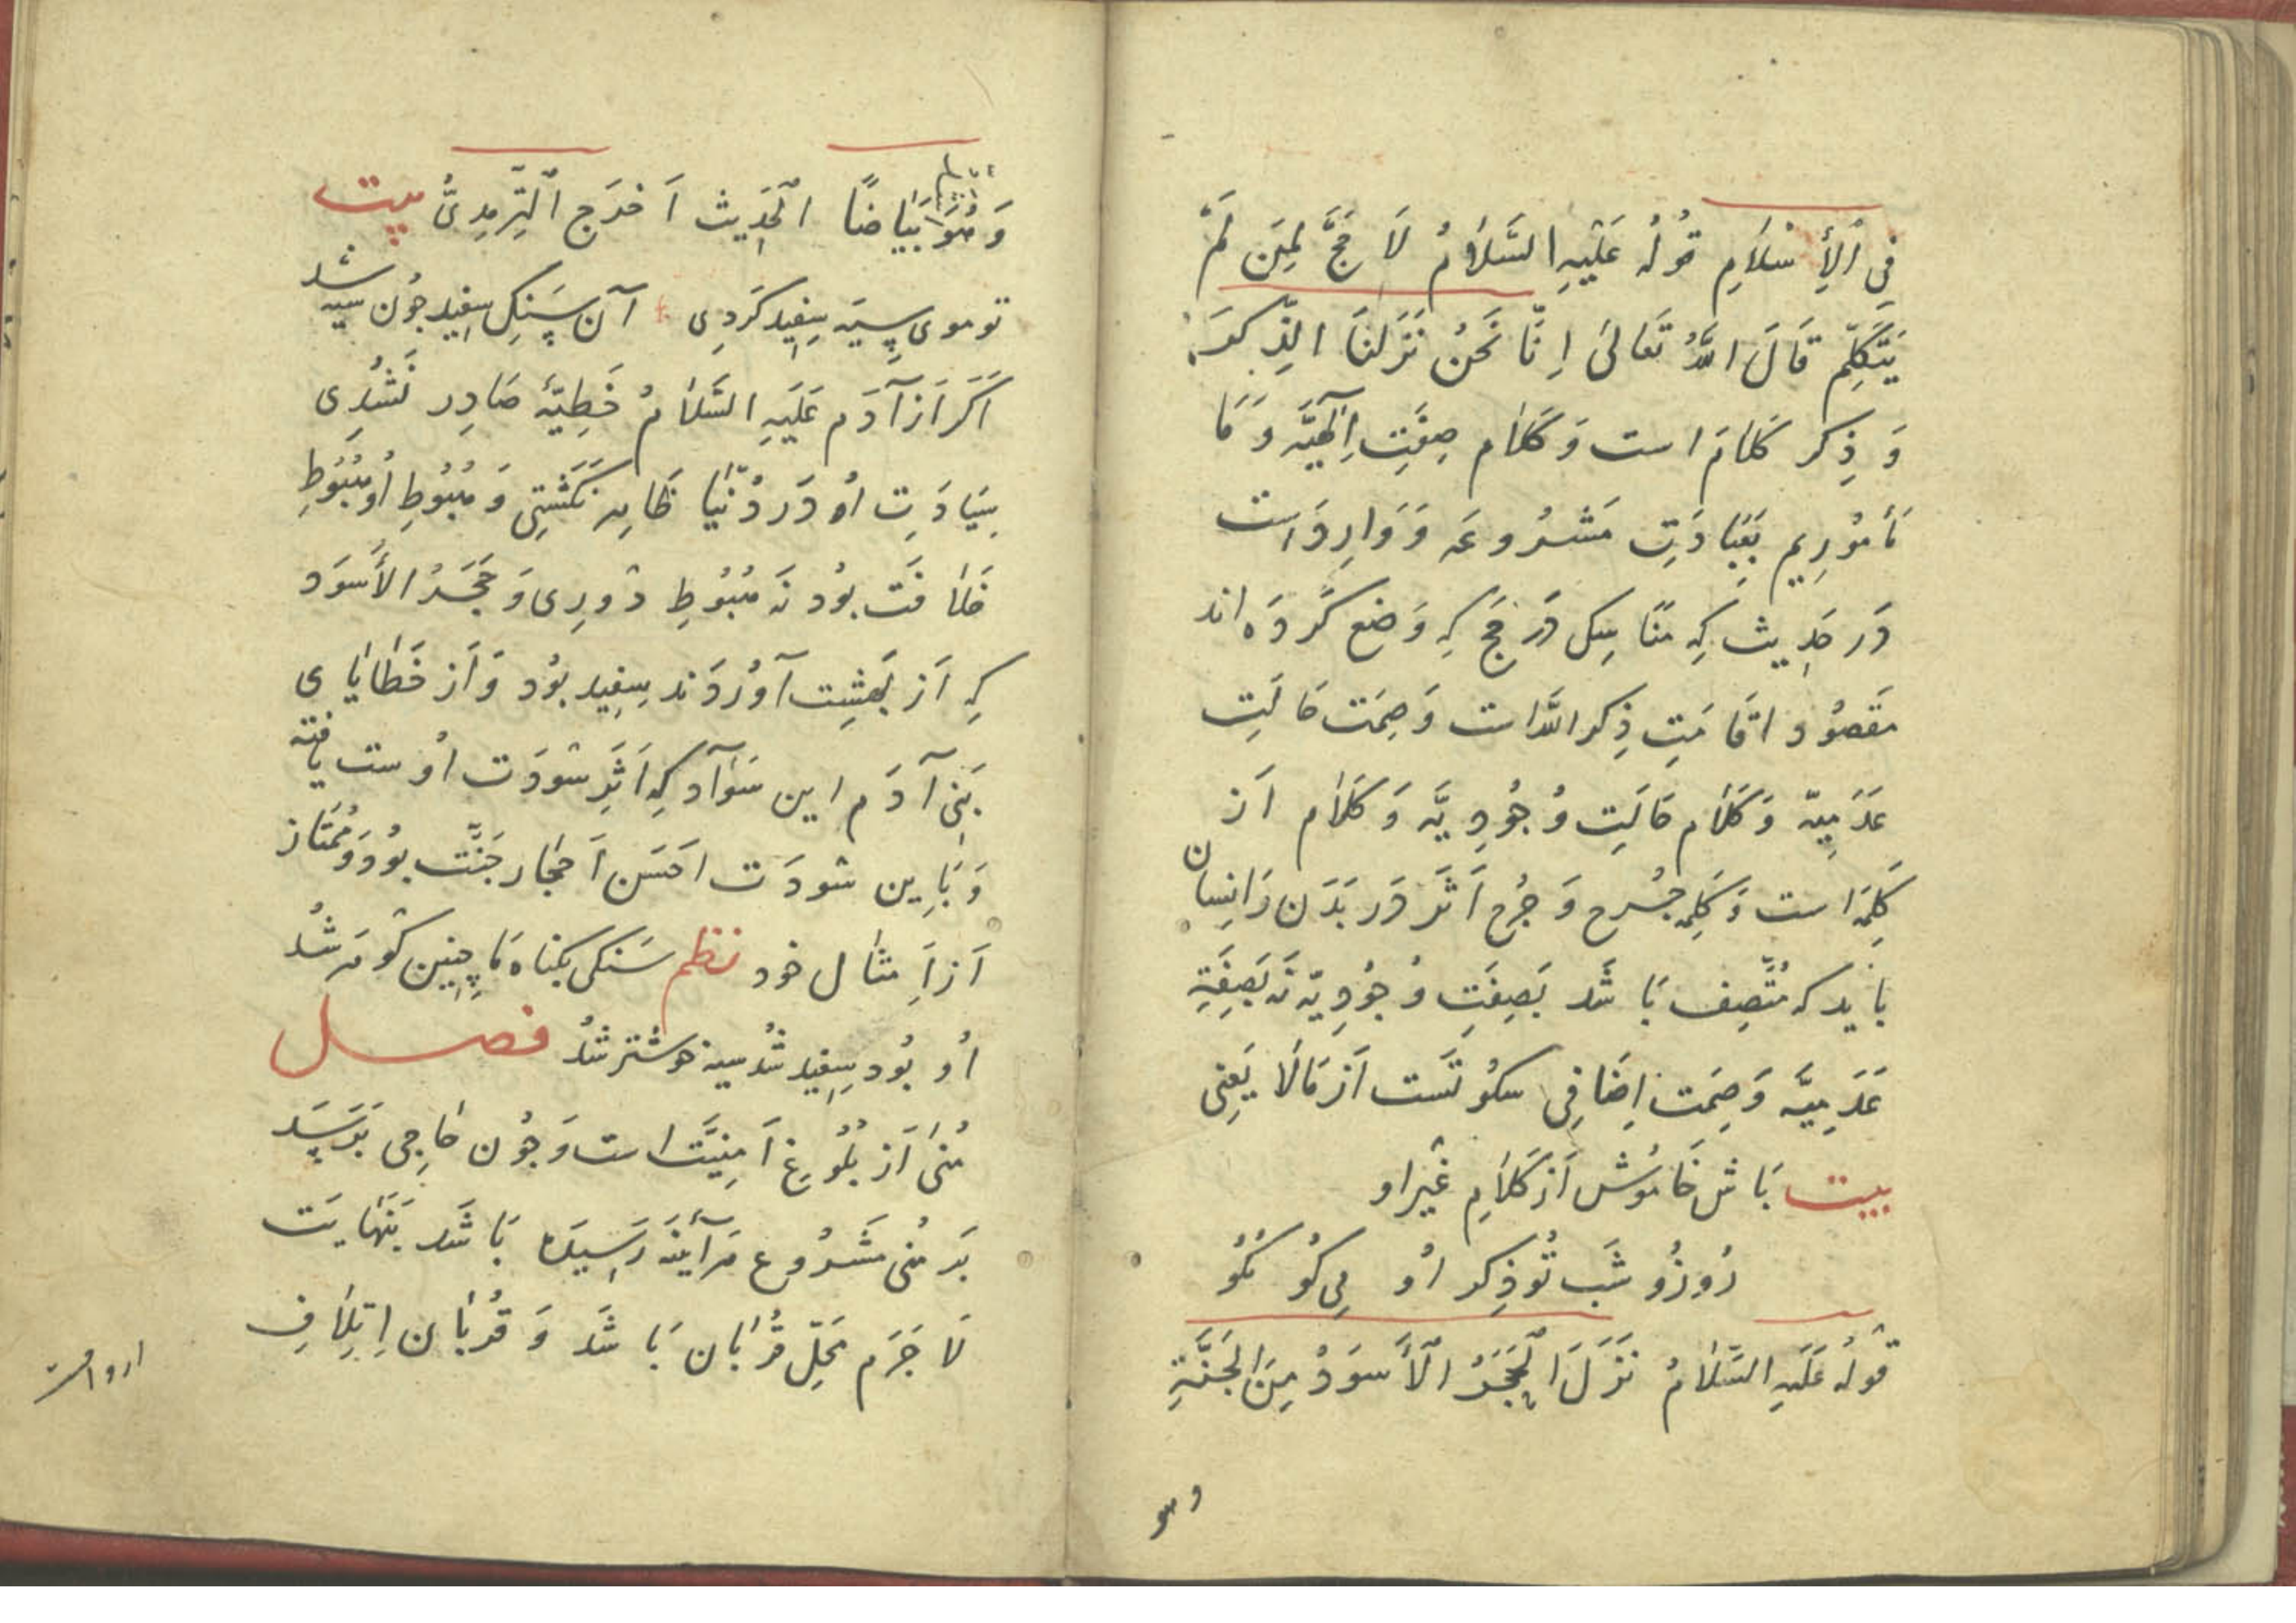 فِي ٱلْأِسْلَامِ قَوْلُهُ عَلَيْهِ السَّلَامُ لَا حَجَّ لِمَنْ لَمْ
يَتَكَلَّمْ قَالَ اللَّهُ تَعَالَى اِنَّا نَحْنُ نَزَّلْنَا الذِّكْرَ
وَ ذِكر كَلَام است وَ كَلَام صِفَتِ اِلٰهِيَّه وَ مَا
مَأمُورِيم بَعِبَادَتِ مَشْرُوعَه وَ وَارِد است
دَر حَدِيث كِه مَنَاسِك دَر حَج كِه وَضع كَردَه اند
مَقصُود اقَامَتِ ذِكر اللّٰه است وَ صِمَت حَالَتِ
عَدَمِيّه وَ كَلَام حَالَتِ وُجُودِيَّه وَ كَلَام اَز
كَلِمَه است وَ كَلِمَه جُرح وَ جُرح اَثَر دَر بَدَن وَ اِنسَان
بايد كه مُتَّصِف بَاشَد بَصِفَتِ وُجُودِيّه نَه بَصِفَتِ
عَدَمِيَّه وَ صِمَت اِضَافِى سكُوتَست اَز مَالَا يَعنِى
بيت بَاش خَامُوش اَز كَلَامِ غَيرِ او
رُوزُ و شَب تُو ذِكر اُو مِى كُو نكُو
قَولُهُ عَلَيهِ السَّلَامُ نَزَلَ الحَجَرُ الأَسوَدُ مِنَ الجَنَّةِ
وهو
وَهُوَ اَشَدُّ بَيَاضًا الحَدِيث اَخرَجَ التِّرمِذِىُّ بيت
تو موى سِيَه سِفِيد كَردِى آن سَنكِ سِفِيد چُون سيه شد
اَكَر اَز آدَم عَلَيهِ السَّلَامُ خَطِيَّه صَادِر نَشُدِى
سِيَادَتِ اُو دَر دُنيَا ظَاهِر نَكَشتِى وَ هُبُوطِ اُو هُبُوطِ
خَلَافَت بُود نَه هُبُوطِ دُورِى وَ حَجَرُ الأَسوَد
كِه اَز بَهِشِت آوُردَند سِفِيد بُود وَ اَز خَطَايَاى
بَنِى آدَم اين سَوَاد كِه اَثَرِ سودَت اُوست يافته
وَ بَاِين سودَت احَسَن اَحجَار جَنَّت بُود وَ مُمتَاز
اَز اَمثال خود نظم سَنكى بكناه مَا چِنين كَوهَر شُد
اُو بُود سِفِيد شُد سيه خوشتر شُد فصل
مُنٰى اَز بُلُوغِ اَمنِيَّت است وَ چُون حَاجِى بَرَسَد
بَر مُنٰى مَشرُوع هَرآينَه رَسِيدَه بَاشَد بَنَهَايَت
لَا جَرَم مَحَلِّ قُربَان بَاشَد وَ قُربَان اِتلَافِ